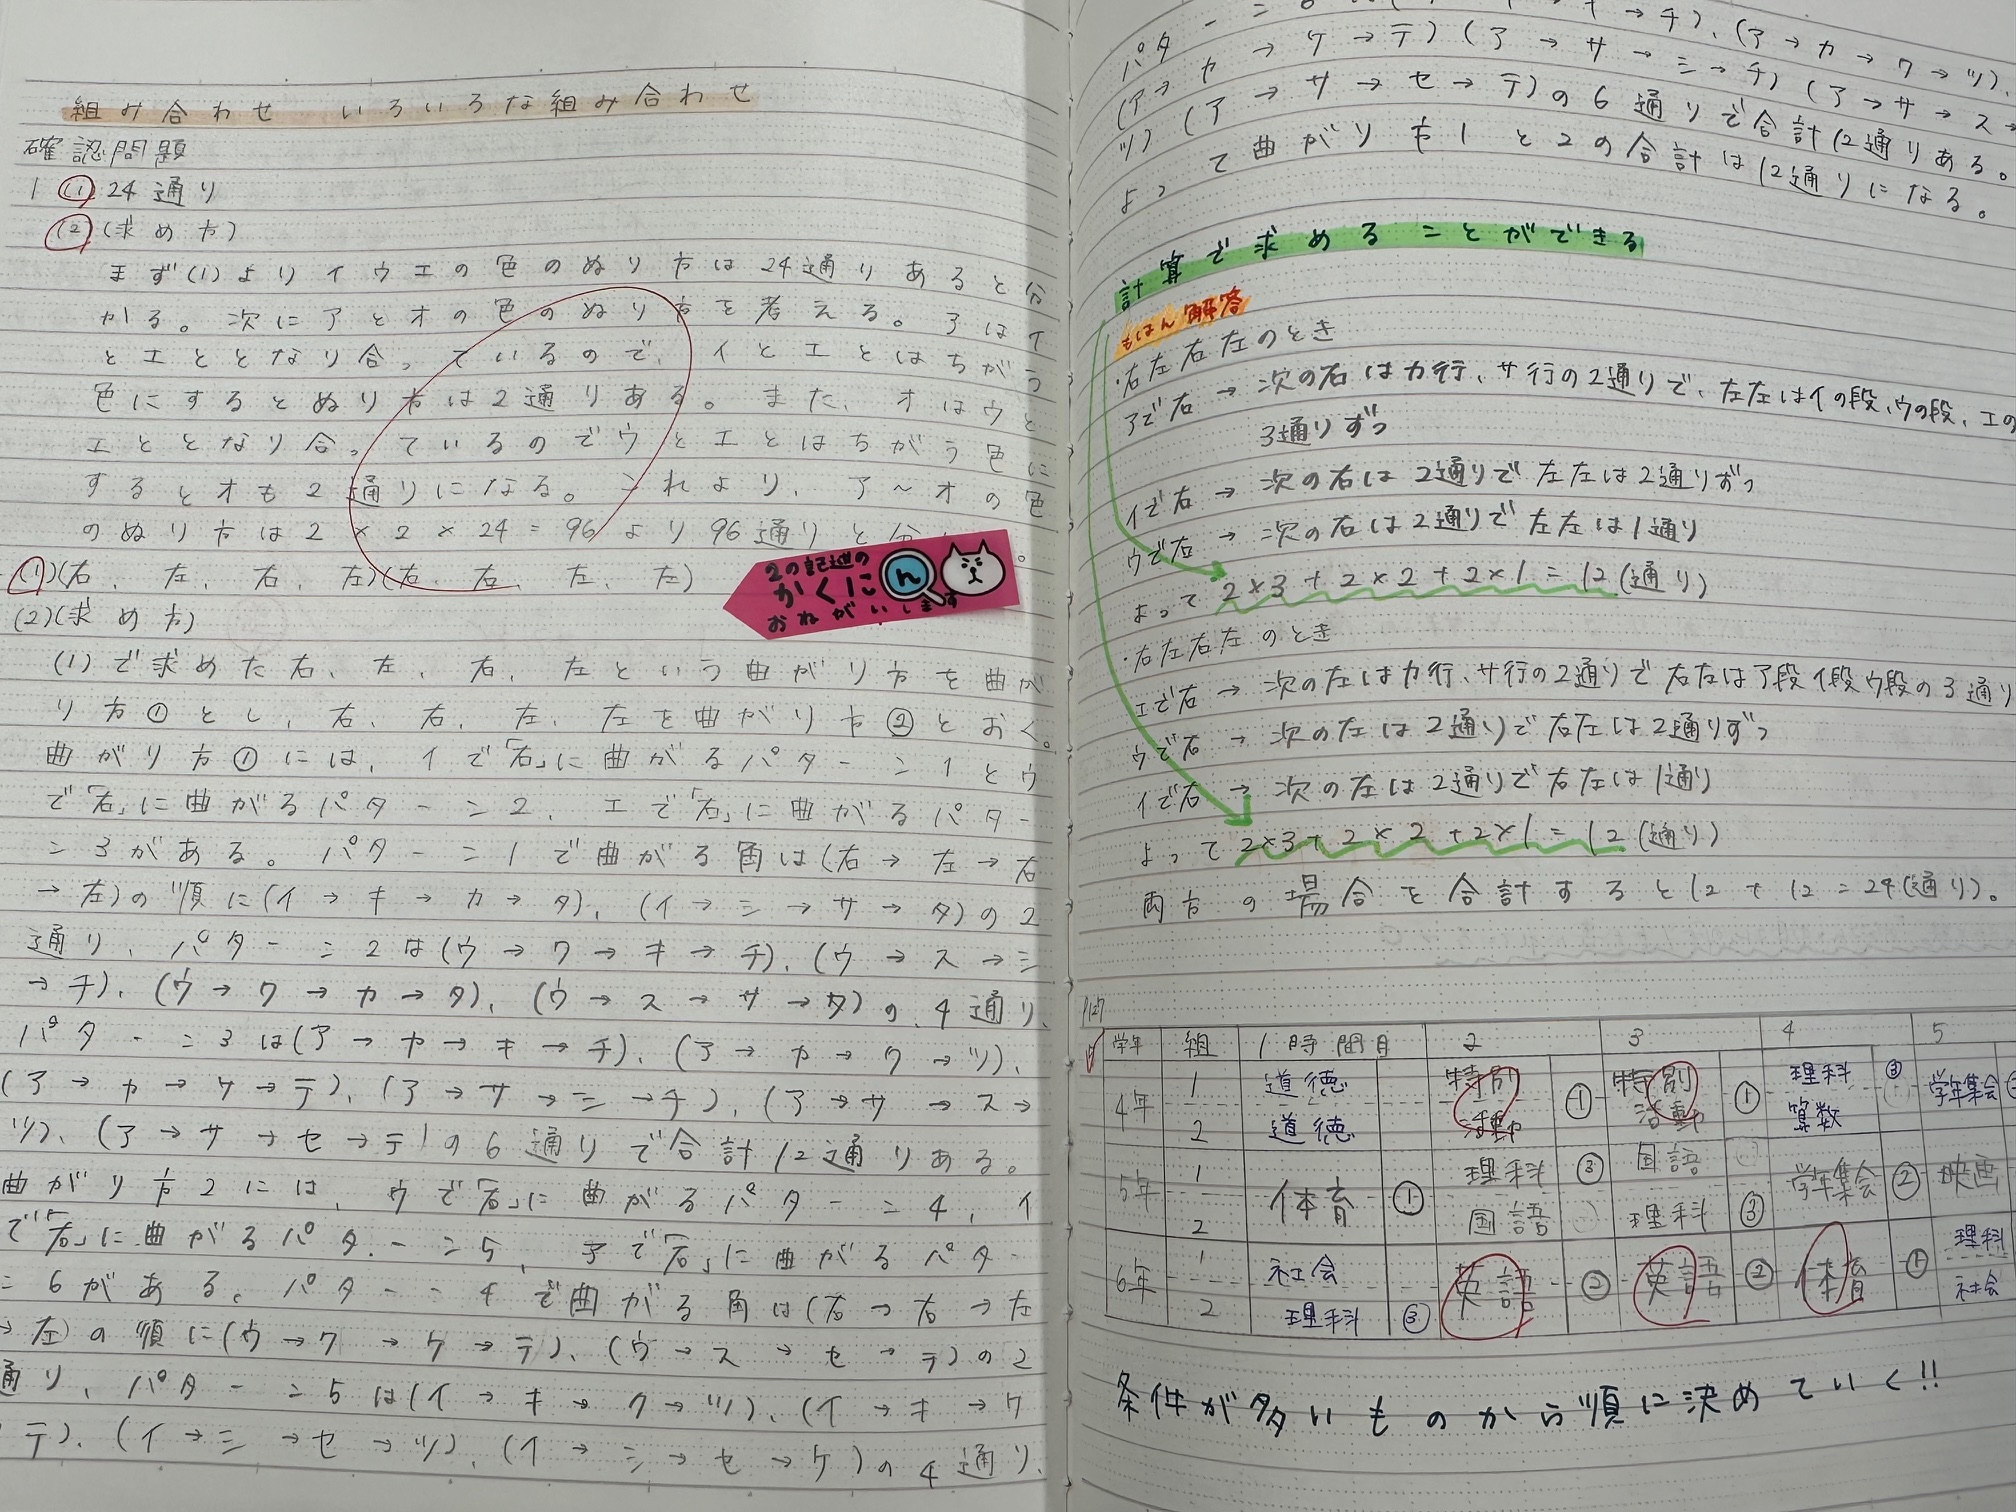 組み合わせ いろいろな組み合わせ
確認問題
1 (1) 24通り
(2) (求め方)
まず(1)よりイウエの色のぬり方は24通りあると分
かる。次にアとオの色のぬり方を考える。アはイ
とエととなり合っているので、イとエとはちがう
色にするとぬり方は2通りある。また、オはウと
エととなり合っているのでウとエとはちがう色に
するとオも2通りになる。これより、ア～オの色
のぬり方は2×2×24=96より96通りと分
2の記述の
かくにん
おねがいします
(1)(右、左、右、左)(右、右、左、左)
(2)(求め方)
(1)で求めた右、左、右、左という曲がり方を曲が
り方①とし、右、右、左、左を曲がり方②とおく。
曲がり方①には、イで「右」に曲がるパターン1とウ
で「右」に曲がるパターン2、エで「右」に曲がるパター
ン3がある。パターン1で曲がる角は(右→左→右
→左)の順に(イ→キ→カ→タ)、(イ→シ→サ→タ)の2
通り、パターン2は(ウ→ク→キ→チ)、(ウ→ス→シ
→チ)、(ウ→ク→カ→タ)、(ウ→ス→サ→タ)の4通り、
パターン3は(ア→カ→キ→チ)、(ア→カ→ク→ツ)、
(ア→カ→ケ→テ)、(ア→サ→シ→チ)、(ア→サ→ス→
ツ)、(ア→サ→セ→テ)の6通りで合計12通りある。
曲がり方2には、ウで「右」に曲がるパターン4、イ
で「右」に曲がるパターン5、アで「右」に曲がるパター
ン6がある。パターン4で曲がる角は(右→右→左
→左)の順に(ウ→ク→ケ→テ)、(ウ→ス→セ→テ)の2
通り、パターン5は(イ→キ→ク→ツ)、(イ→キ→ケ
テ)、(イ→シ→セ→ツ)、(イ→シ→セ→ケ)の4通り、
パターン→チ)、(ア→カ→ク→ツ)、
(ア→カ→ケ→テ)(ア→サ→シ→チ)(ア→サ→ス→
ツ)(ア→サ→セ→テ)の6通りで合計12通りある。
よって曲がり方1と2の合計は12通りになる。
計算で求めることができる
もはん解答
・右左右左のとき
アで右→次の右はカ行、サ行の2通りで、左左はイの段、ウの段、エの
3通りずつ
イで右→次の右は2通りで左左は2通りずつ
ウで右→次の右は2通りで左左は1通り
よって2×3+2×2+2×1=12(通り)
・右左右左のとき
エで右→次の左はカ行、サ行の2通りで右左はア段イ段ウ段の3通り
ウで右→次の左は2通りで右左は2通りずつ
イで右→次の左は2通りで右左は1通り
よって2×3+2×2+2×1=12(通り)
両方の場合を合計すると12+12=24(通り)。
学年 組 1時間目 2 3 4 5
4年 1 道徳 特別活動 ① 特別活動 ① 理科 ③ 学年集会
2 道徳 算数
5年 1 体育 ① 理科 ③ 国語 学年集会 ② 映画
2 国語 理科 ③
6年 1 社会 英語 ② 英語 ② 体育 ① 理科
2 理科 ③ 社会
条件が多いものから順に決めていく!!